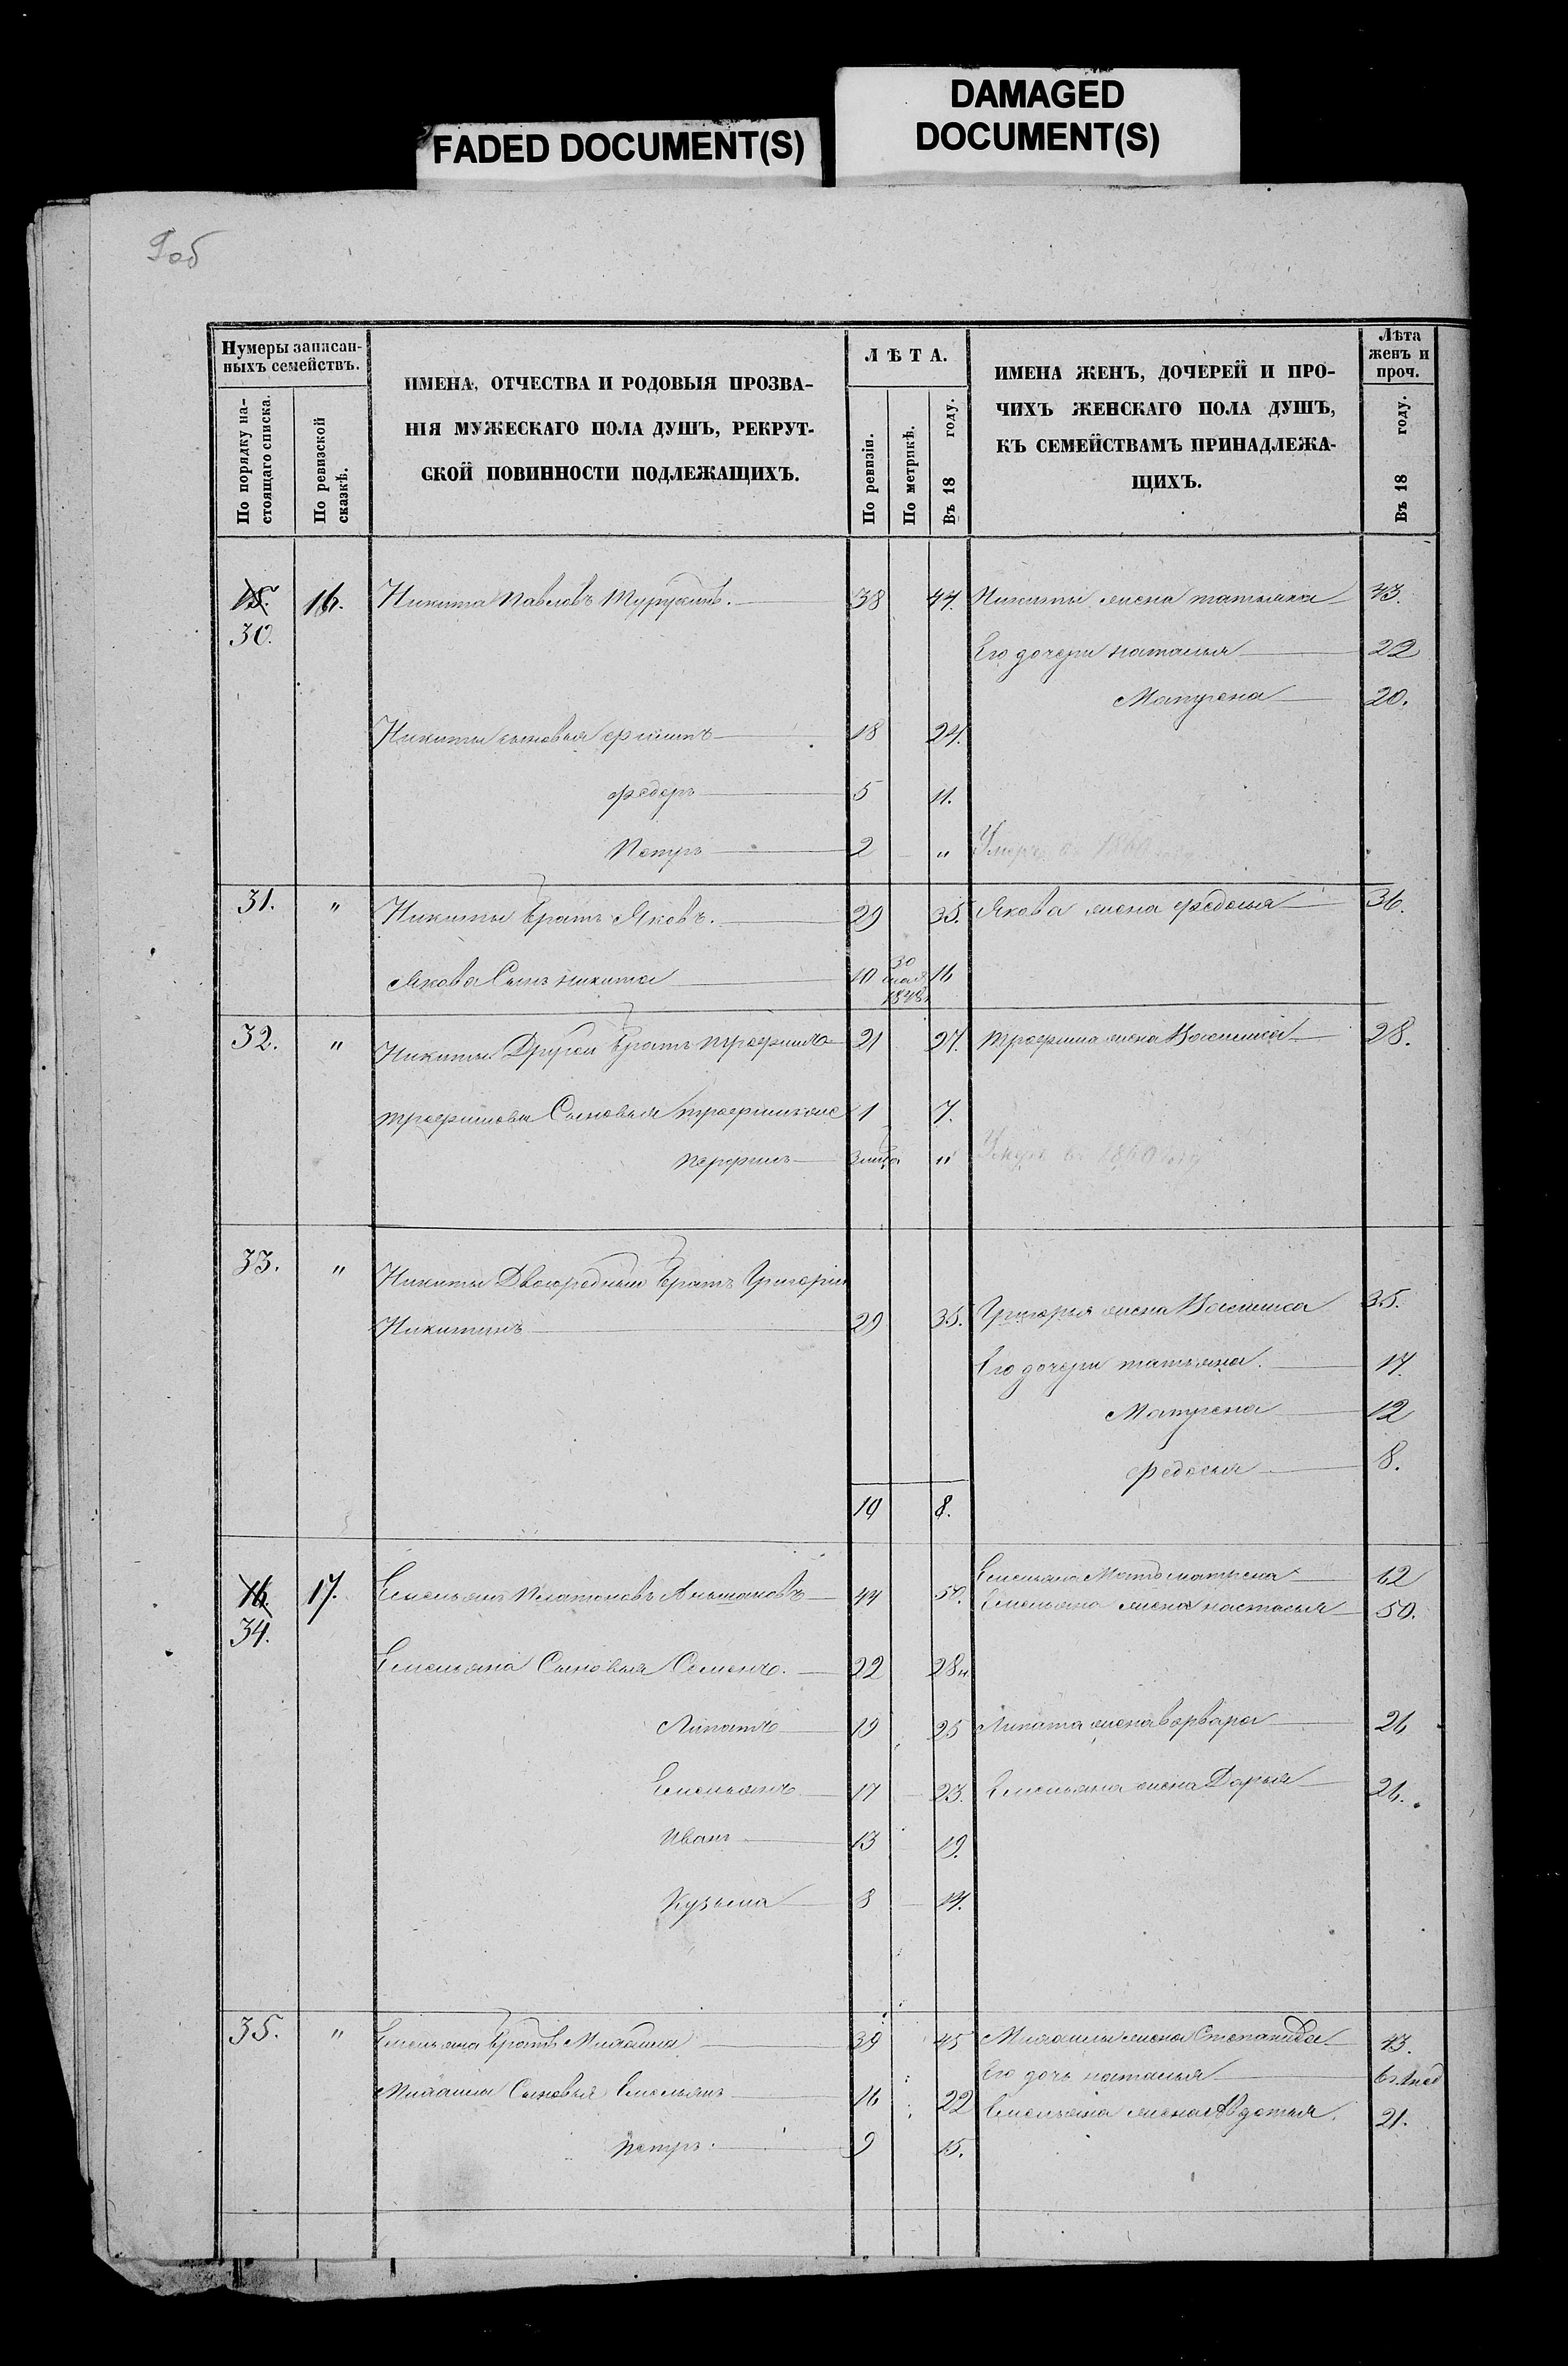 FADED DOCUMENT(S)
DAMAGED
DOCUMENT(S)
9об
Нумеры записан-
ныхъ семействъ.
По порядку на-
стоящаго списка.
По ревизской
сказкѣ.
ИМЕНА, ОТЧЕСТВА И РОДОВЫЯ ПРОЗВА-
НІЯ МУЖЕСКАГО ПОЛА ДУШЪ, РЕКРУТ-
СКОЙ ПОВИННОСТИ ПОДЛЕЖАЩИХЪ.
ЛѢТА.
По ревизіи.
По метрикѣ.
Въ 18 году.
ИМЕНА ЖЕНЪ, ДОЧЕРЕЙ И ПРО-
ЧИХЪ ЖЕНСКАГО ПОЛА ДУШЪ,
КЪ СЕМЕЙСТВАМЪ ПРИНАДЛЕЖА-
ЩИХЪ.
Лѣта
женъ и
проч.
Въ 18 году.
15. 16. Никита Павловъ 38 44. Никиты жена татьяна 43.
30.
Его дочери наталья 22
Матрена 20.
Никиты сыновья 18 24.
федеръ 5 11.
Петръ 2 " Умеръ въ 1860 году
31. " Никиты братъ Яковъ. 29 35. Якова жена федосья 36.
Якова Сынъ никита 10 30 мая 1848 16
32. " Никиты Другой братъ трофимъ 21 27. трофима жена Василиса 28.
трофимовы Сыновья 1 7.
3 "  Умеръ въ 1860 году
33. " Никиты Двоюродный братъ Григорий
Никитинъ 29 35. Григорья жена Василиса 35.
Его дочери татьяна. 17.
Матрена 12
федосья 8.
10 8.
16. 17. Емельянъ Платоновъ 44 50. Емельяна Мать матрена 62
34. Емельяна жена настасья 50.
Емельяна Сыновья Семенъ. 22 28
Липатъ 19 25 Липата жена варвара 26
Емельянъ 17 23. Емельяна жена Дарья 26.
Иванъ 13 19.
Кузьма 8 14.
35. " Емельяна братъ Михайла 39 45 Михайлы жена Степанида 43.
Его дочь наталья
Михайлы Сыновья Емельянъ 16 22 Емельяна жена Авдотья. 21.
петръ. 9 15.